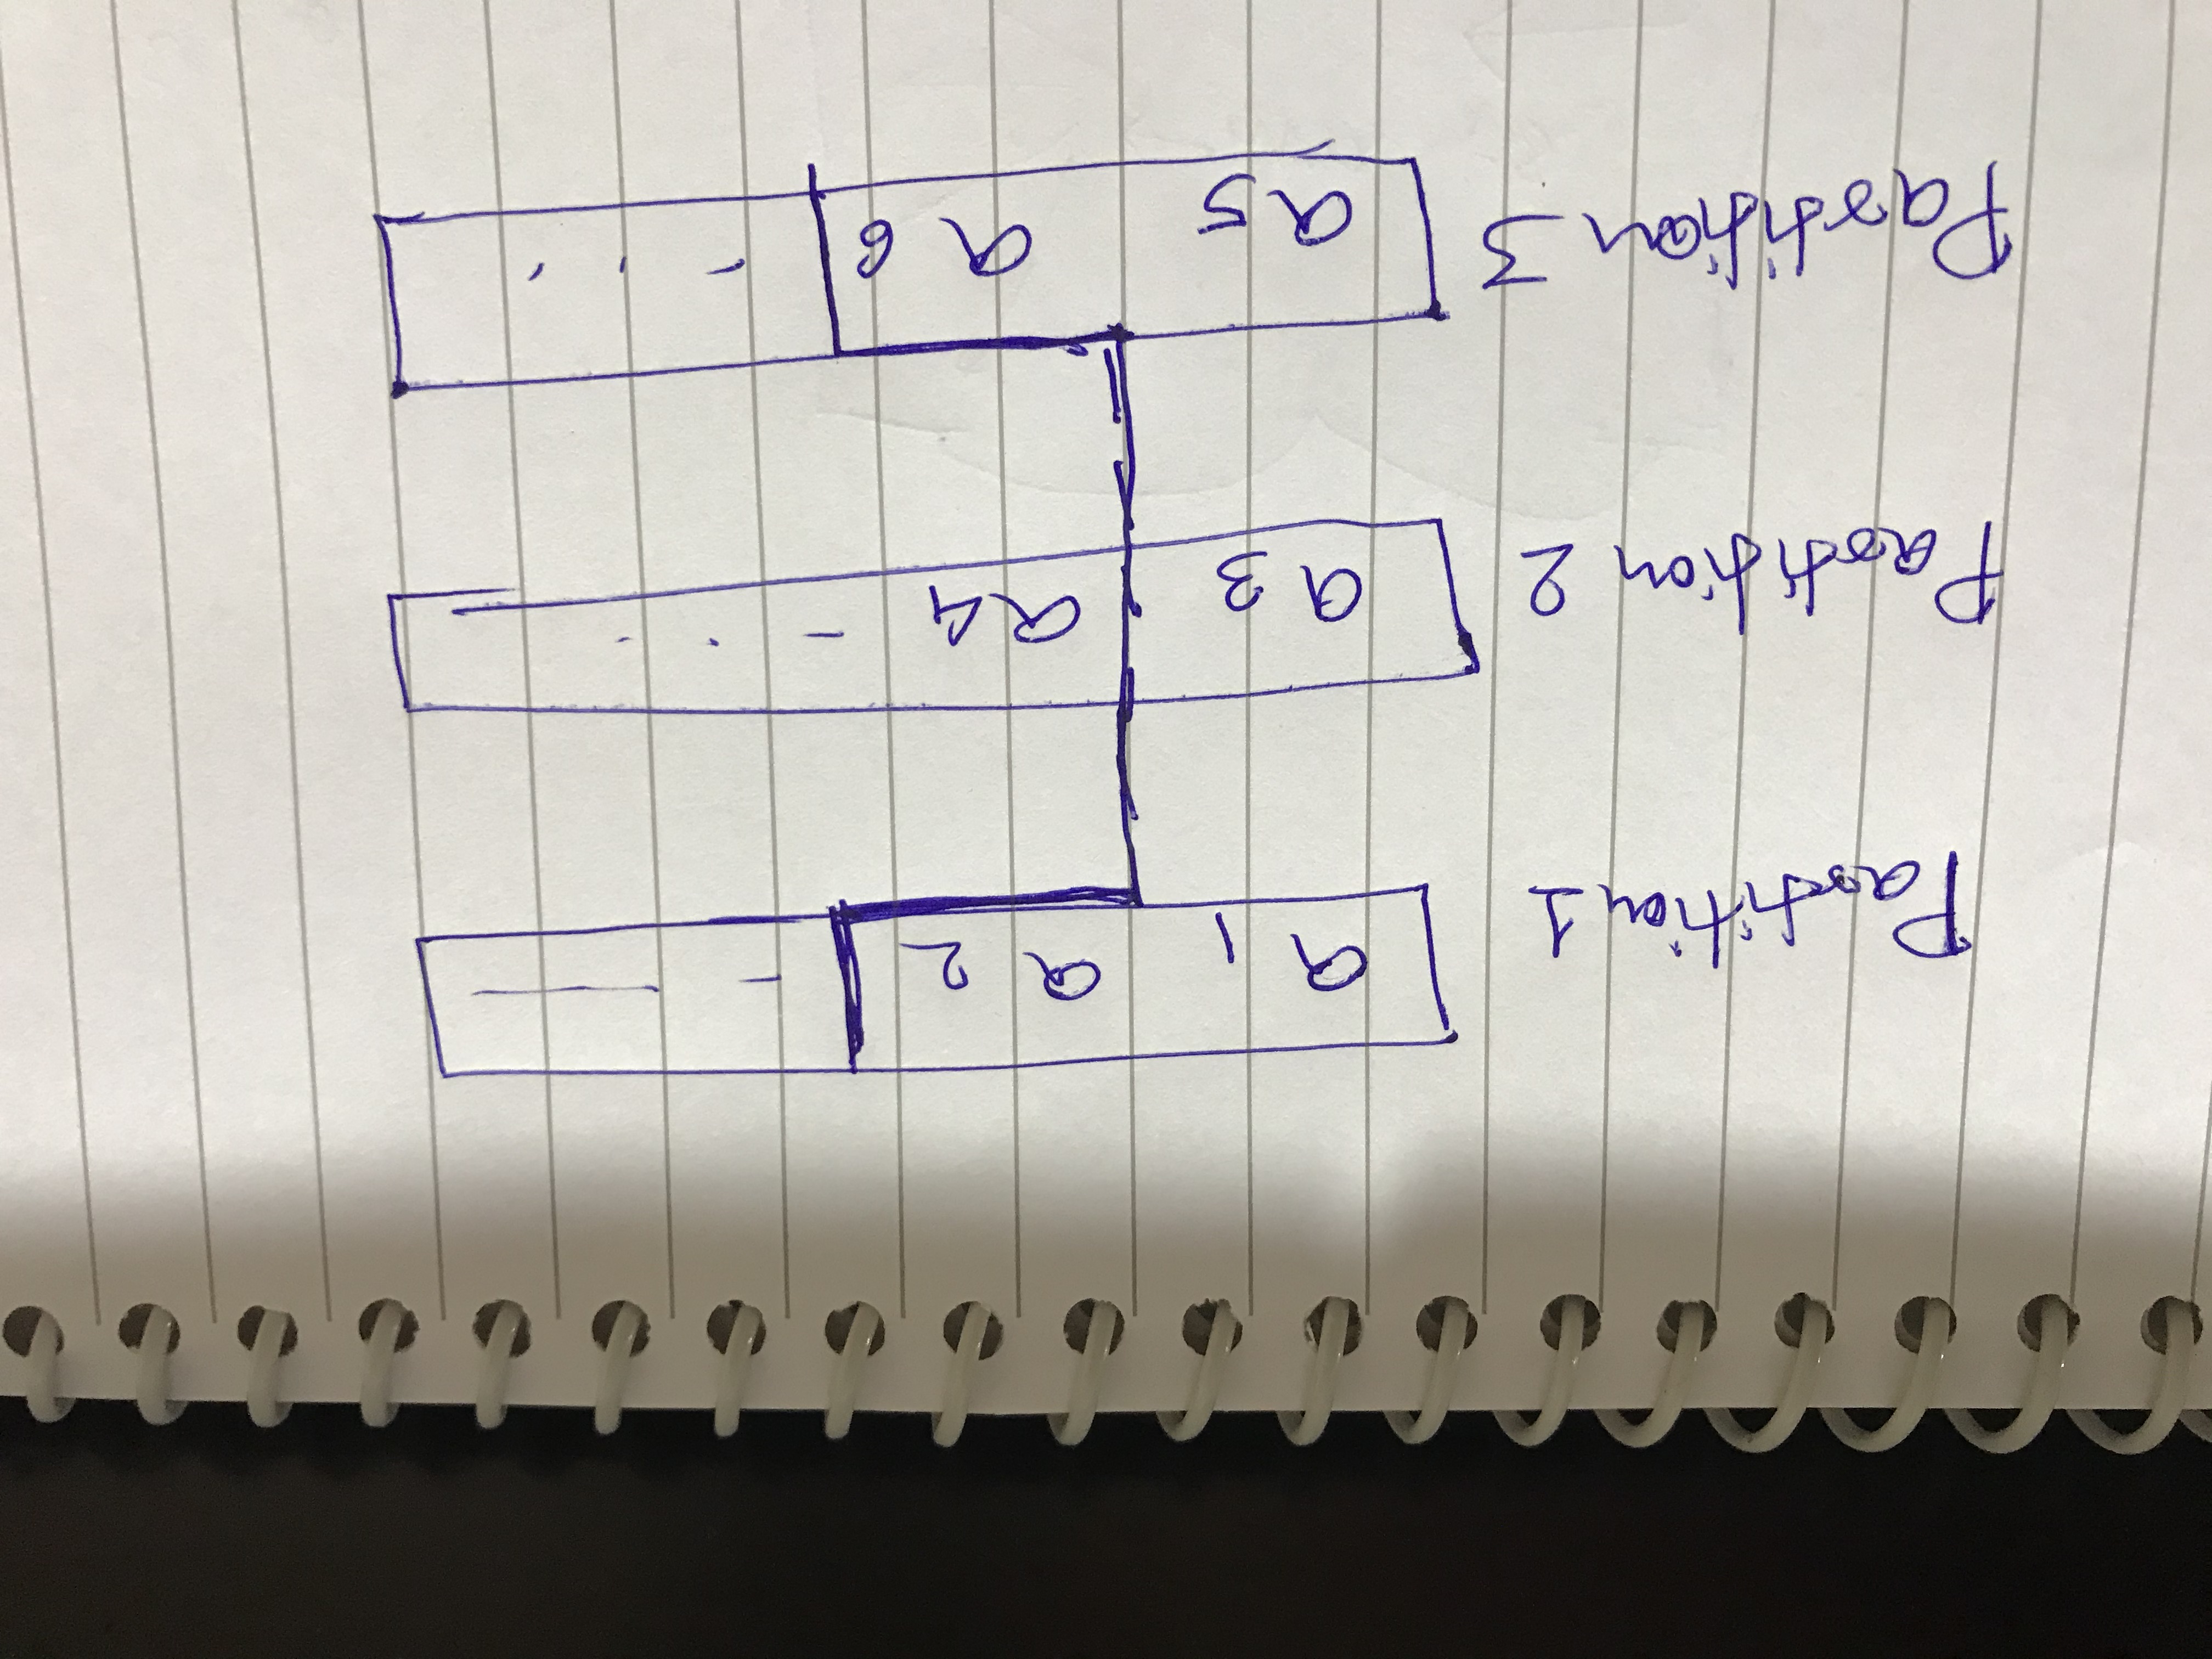 Partition 1 a1 a2 - —
Partition 2 a3 a4 - . .
Partition 3 a5 a6 - . .